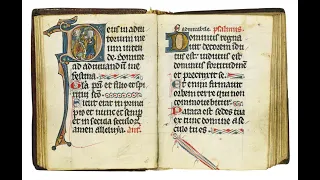 Deus in adiu
torium me
um inten
de. Domine
ad adiuuandū me
festina.
Sicut erat in princi
pio et nunc et semper
et in secula seculoꝝ
amen alleluya. añ.
admirabile. psalmus.
Dominus regna
uit decorem idu
tus est: indutus est
dominus fortitudinem et
precinxit se
Etenim firmauit
orbem terre qui non
commouebitur.
Parata est sedes tua
a seculo
tu es